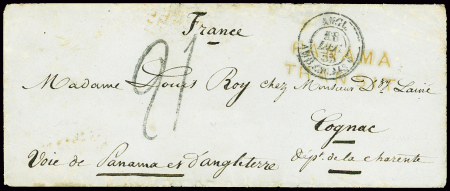 France
ANGL.
PANAMA
TRANSIT
21
Madame Louis Roy chez Monsieur Dʳ Lainé
Cognac
Voie de Panama et d'angleterre
Dépᵗ. de la charente